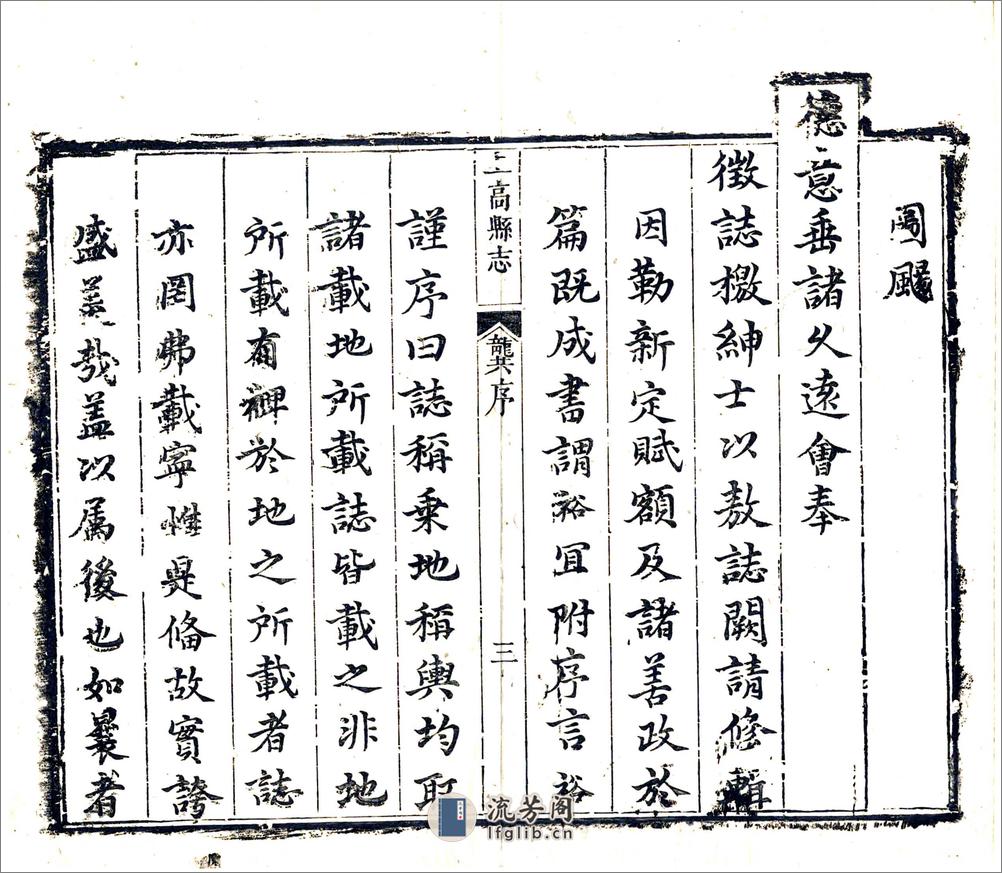 闿颺
德意垂諸久遠會奉
徵誌檄紳士以敖誌闕請修輯
因勒新定賦額及諸善政於
篇既成書謂裕宜附序言裕
上高縣志
龔序
三
謹序曰誌稱乗地稱輿均取
諸載地所載誌皆載之非地
所載有裨於地之所載者誌
亦罔弗載寧惟是偹故實誇
盛美哉盖以属後也如曩者
流芳阁
lfglib.cn